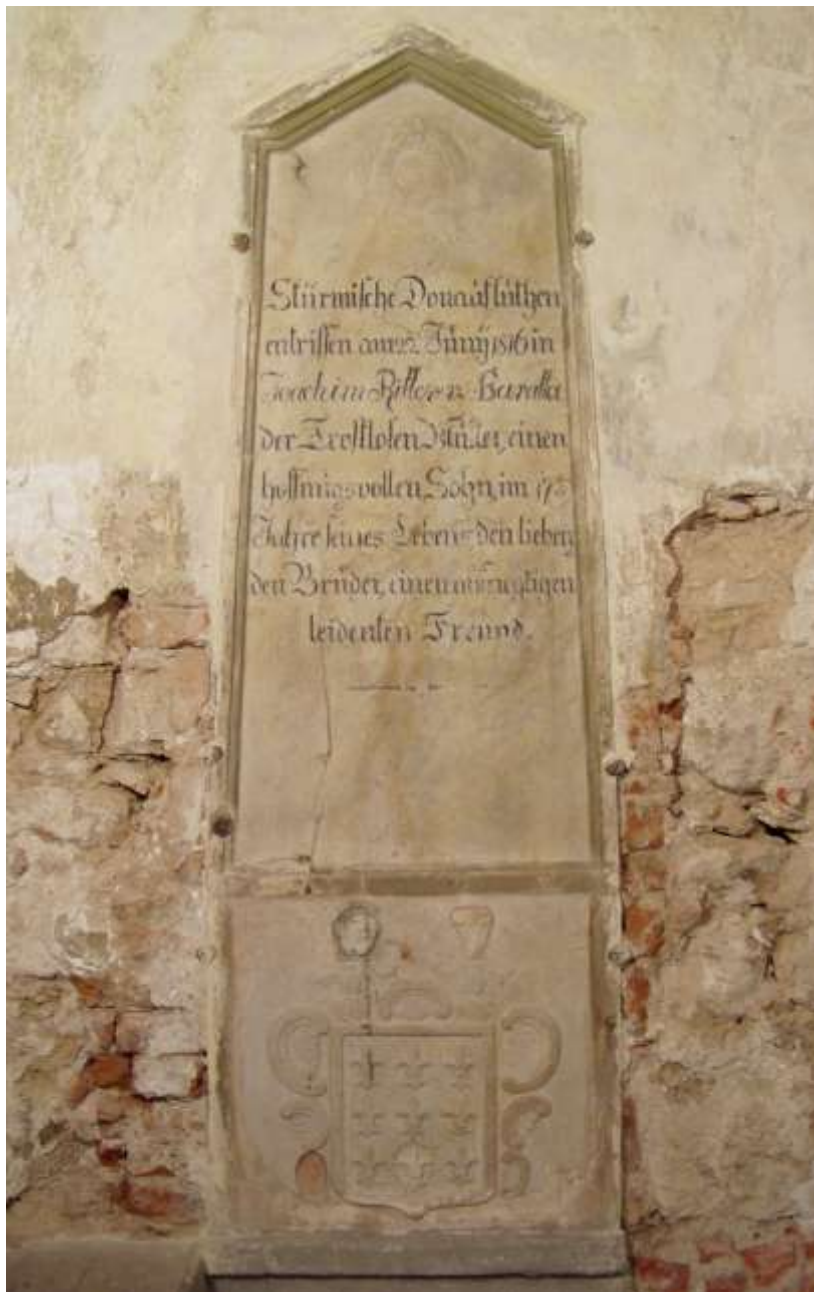 Stürmische Donaúflúthen
entrissen am 22. Júnÿ 1816 in
Joachim Ritter v.
der Trostlosen einen
hoffnúgsvollen Sohn, im 17
Jahre seines Lebens den lieben
den Brúder, einen
leidenten Freúnd.